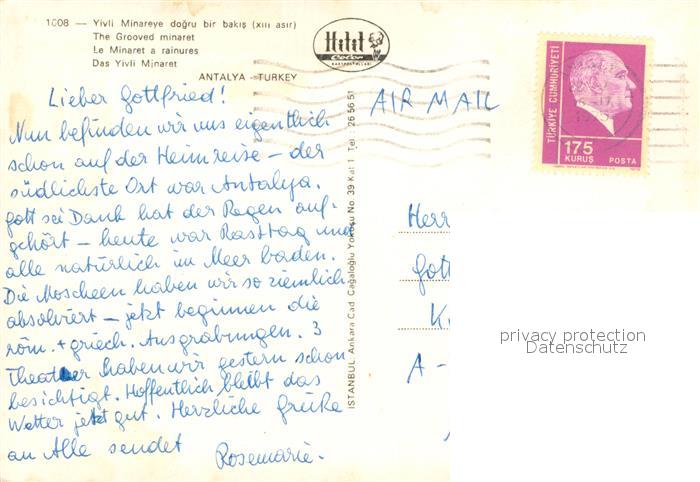 1008 — Yivli Minareye doğru bir bakış (XIII asır)
The Grooved minaret
Le Minaret a rainures
Das Yivli Minaret
ANTALYA - TURKEY
Hitit
Color
KARTPOSTALLARI
AIR MAIL
TÜRKİYE CUMHURİYETİ
175
KURUŞ POSTA
Lieber Gottfried!
Nun befinden wir uns eigentlich
schon auf der Heimreise – der
südlichste Ort war Antalya.
Gott sei Dank hat der Regen auf-
gehört – heute war Rasttag und
alle natürlich im Meer baden.
Die Moscheen haben wir so ziemlich
absolviert – jetzt beginnen die
röm. + griech. Ausgrabungen. 3
Theater haben wir gestern schon
besichtigt. Hoffentlich bleibt das
Wetter jetzt gut. Herzliche Grüße
an Alle sendet
Rosemarie.
İSTANBUL: Ankara Cad. Cağaloğlu Yokuşu No. 39 Kat 1 Tel : 26 56 51
Herr
Gott
K
A -
privacy protection
Datenschutz